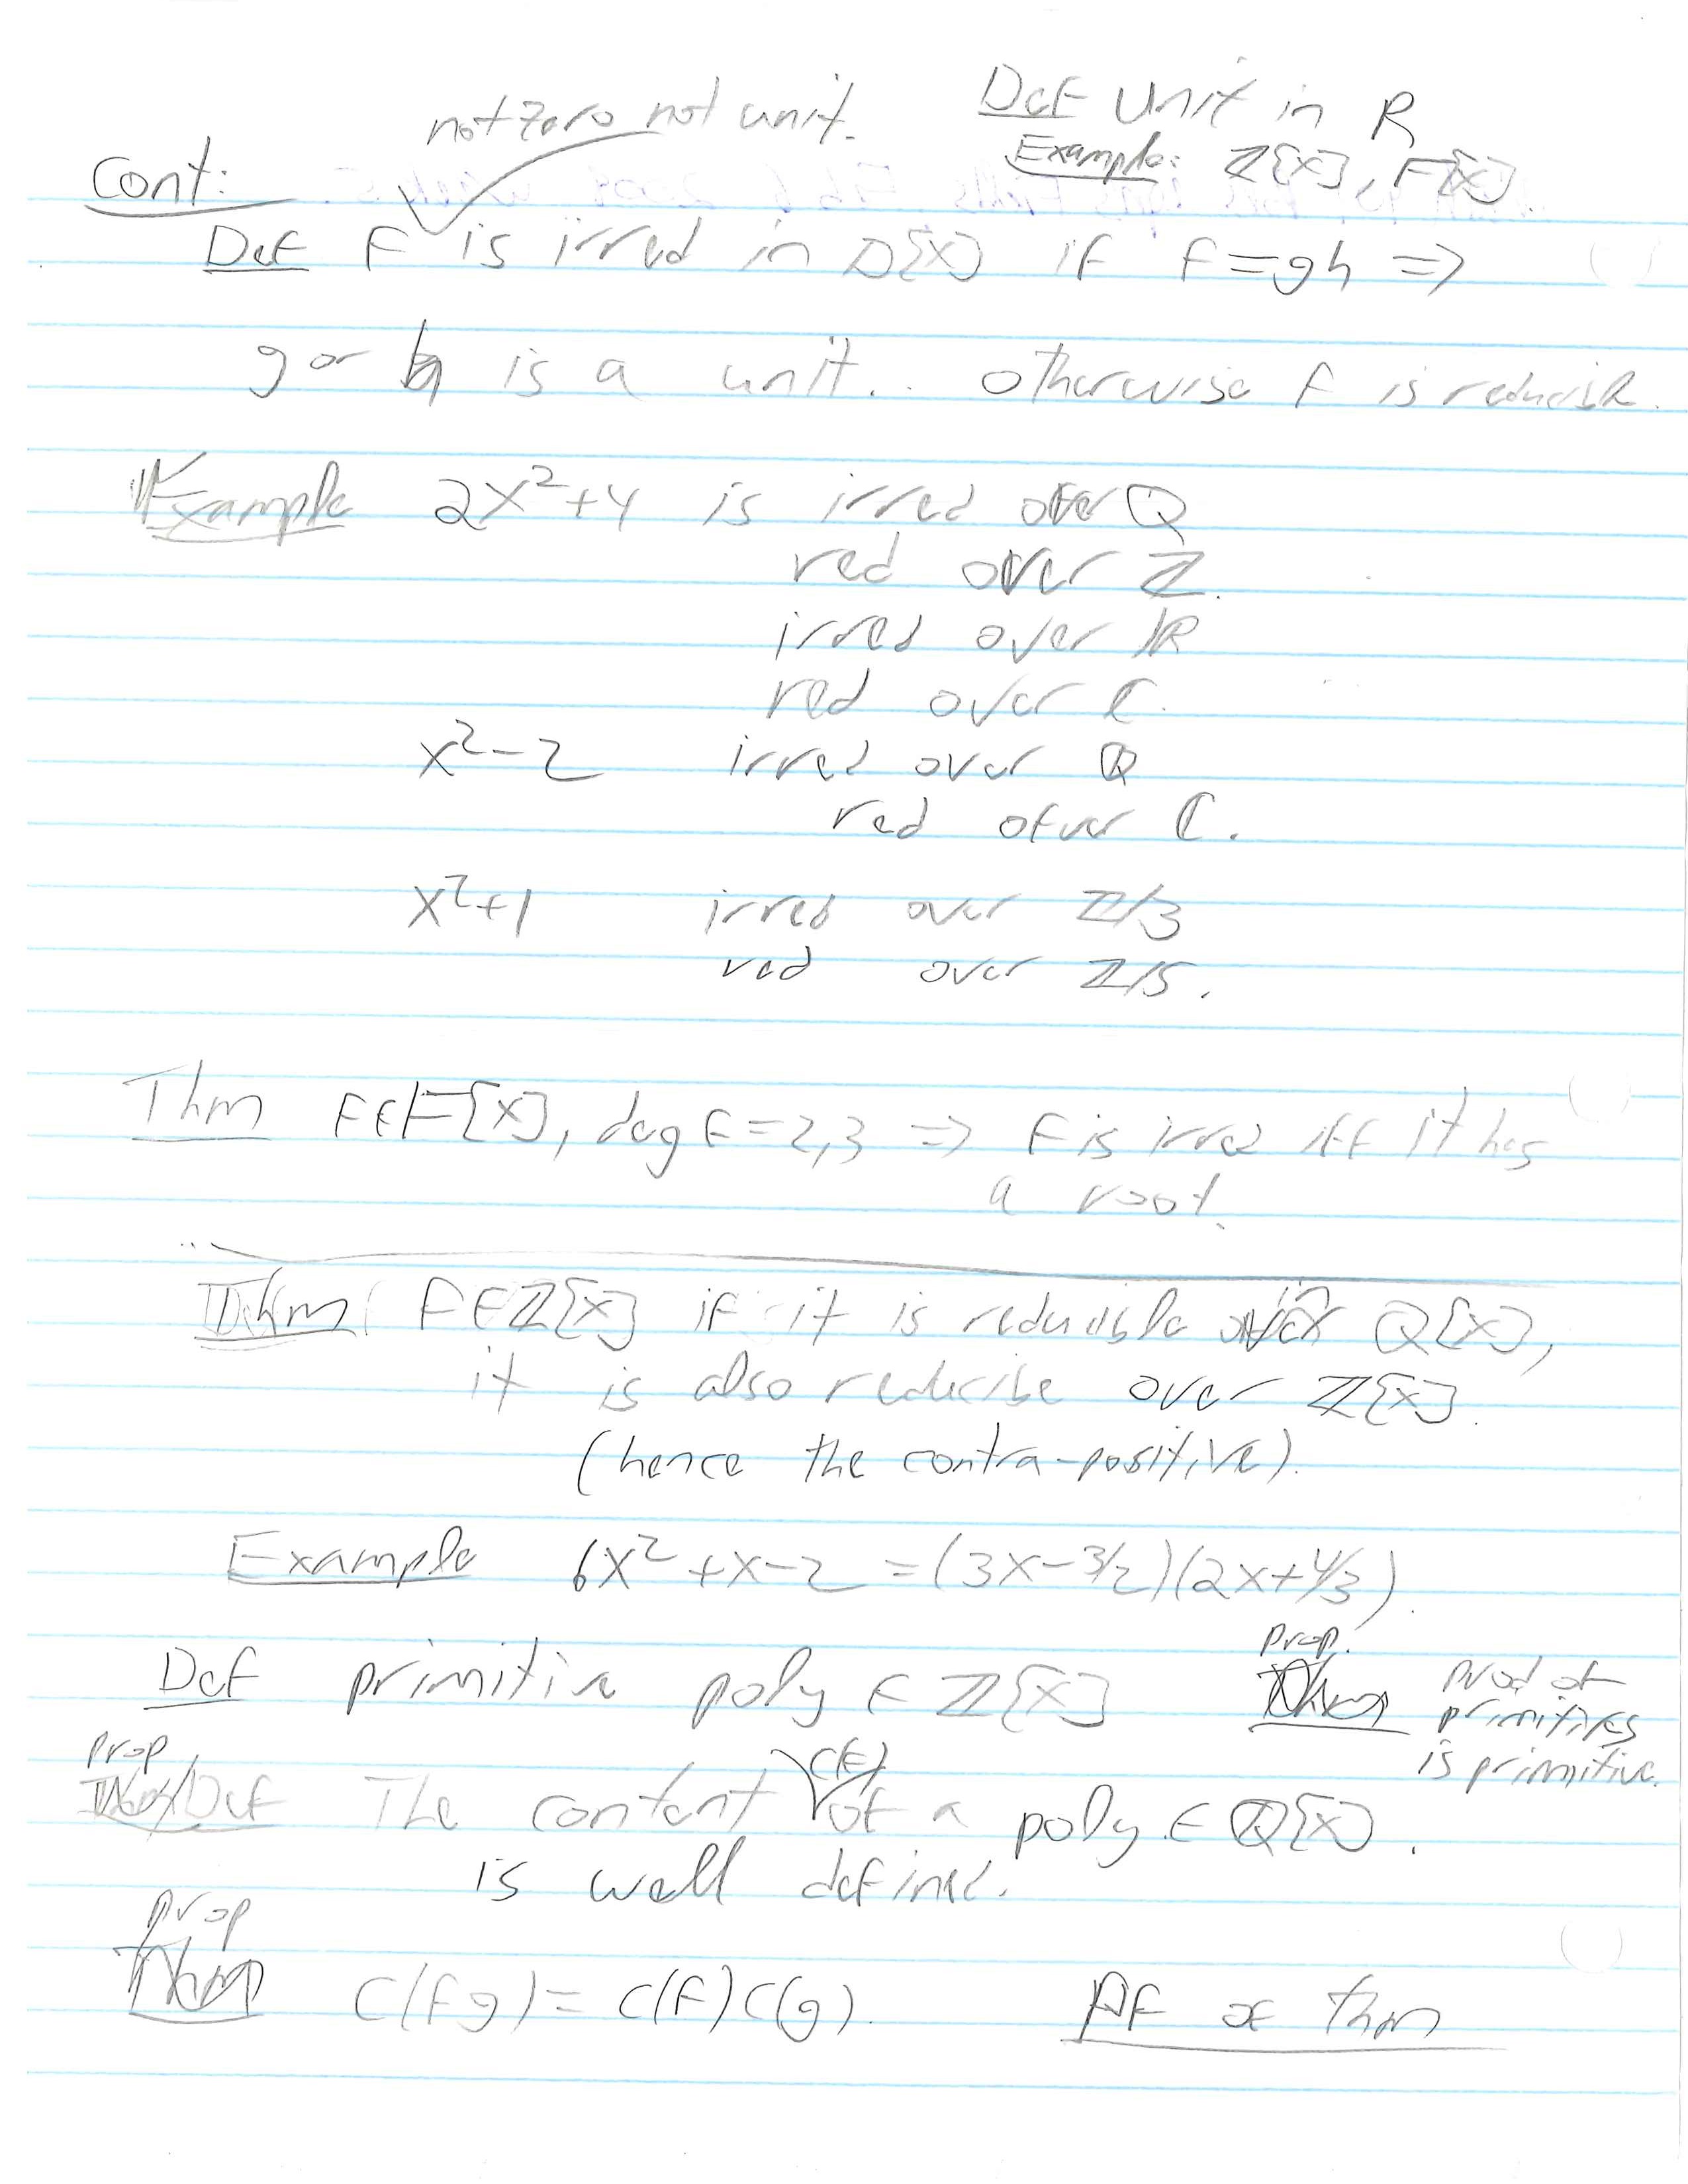 Def Unit in R
not zero not unit.
Example: Z[x], F[x]
Cont:
Def f is irred in D[x] if f=gh =>
g or h is a unit. otherwise f is reducible.
Example 2x²+4 is irred over Q
red over Z.
irred over R
red over C.
x²-2 irred over Q
red over C.
x²+1 irred over Z/3
red over Z/5.
Thm f∈F[x], deg f=2,3 => f is irred iff it has
a root.
Thm f∈Z[x] if it is reducible in Q[x],
it is also reducibe over Z[x].
(hence the contra-positive).
Example 6x²+x-2 = (3x-3/2)(2x+4/3).
Def primitive poly ∈ Z[x]
Prop. prod of
primitives
is primitive.
Prop/Def The content c(f) of a poly ∈ Q[x].
is well defined.
Prop
c(fg) = c(f)c(g). Pf of thm